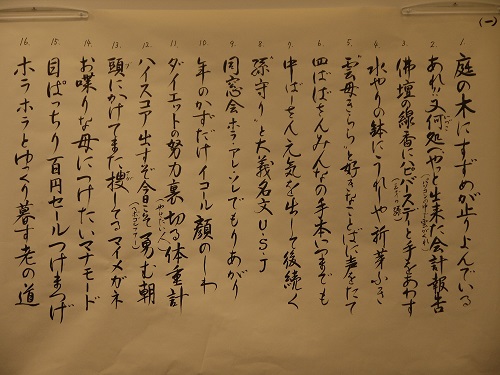 (一)
1. 庭の木にすずめが止りよんでいる
2. あれ!!又何処(どこ)へやっと出来た会計報告
(パソコンの中で書かくれ)
3. 佛壇の線香にハピバースデーと手をあわす
4. 水やりの鉢にうれしや新芽ふき
5. 雲母きらら〟と好きなことばに声をたて
6. 四ばばさんみんなの手本いつまでも
7. 中ばーさん元気を出して後続く
8. 孫守り〟と大義名文U.S.J
9. 同窓会ホラ・アレ・ソレでもりあがり
10. 年のかずだけイコール顔のしわ
11. ダイエットの努力裏切る体重計
(やせたい人)
12. ハイスコア出すぞ今日こそ勇む朝
13. 頭にかけてまた捜してるマイメガネ
14. お喋りな母につけたいマナーモード
15. 目ぱっちり百円セールつけまつげ
16. ホラホラとゆっくり暮す老の道